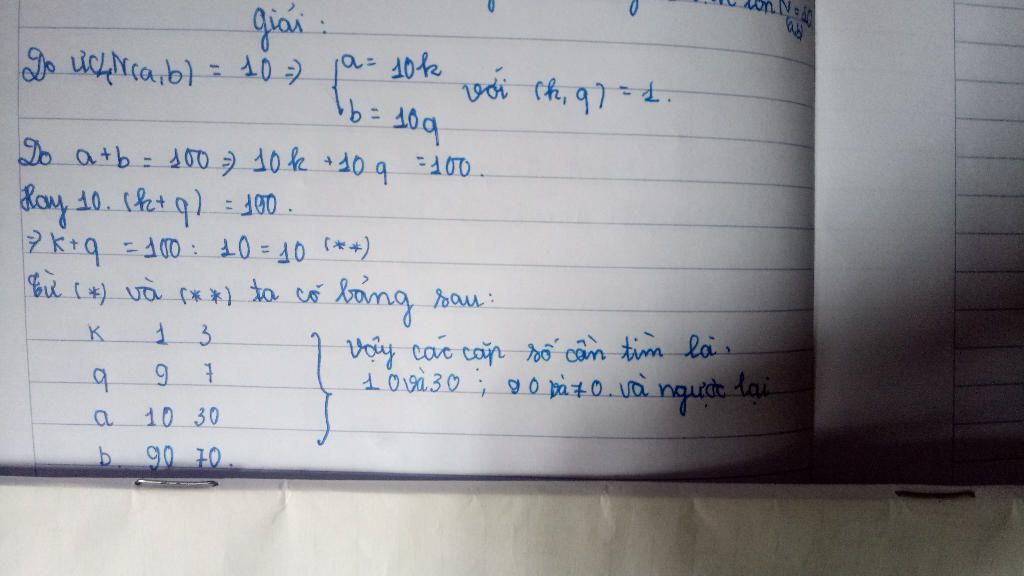 giải :
Do ƯCLN(a,b) = 10 => { a = 10k
b = 10q với (k, q) = 1.
Do a+b = 100 => 10k +10q =100.
Hay 10. (k+q) = 100.
=> k+q = 100 : 10 = 10 (**)
Từ (*) và (**) ta có bảng sau:
K 1 3
q 9 7
a 10 30
b. 90 70.
Vậy các cặp số cần tìm là.
10 và 30 ; 90 và 70. và ngược lại